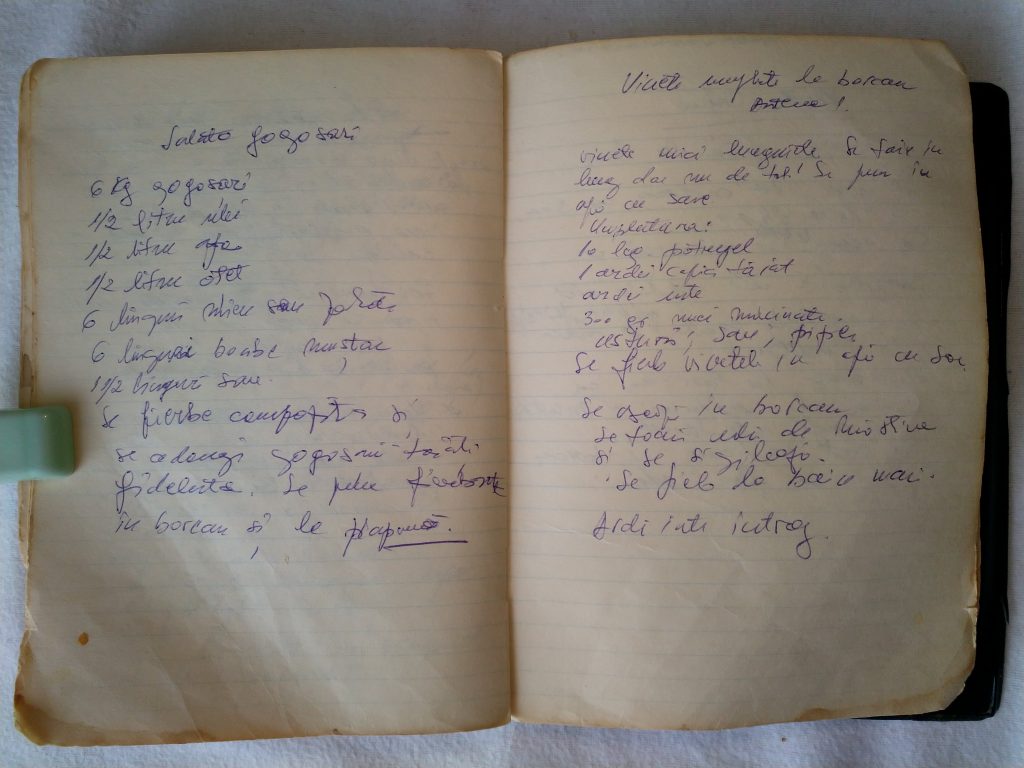 Salată gogoșari
6 kg gogoșari
1/2 litru ulei
1/2 litru apă
1/2 litru oțet
6 linguri miere sau zahăr
6 linguri boabe muștar
1 1/2 lingură sare
Se fierbe compoziția și
se adaugă gogoșarii tăiați
fideluță. Se pun fierbinte
în borcan și la plapumă.
Vinete umplute la borcan
vinete mici lunguiețe. Se taie în
lung dar nu de tot! Se pun în
apă cu sare
Umplutura:
10 leg pătrunjel
1 ardei capia tăiat
ardei iute
300 gr nuci măcinate
usturoi, sare, piper
Se fierb vinetele în apă cu sare
Se așază în borcan
Se toarnă ulei de măsline
și se sigilează.
Se fierb la bain mari.
Ardei iute întreg